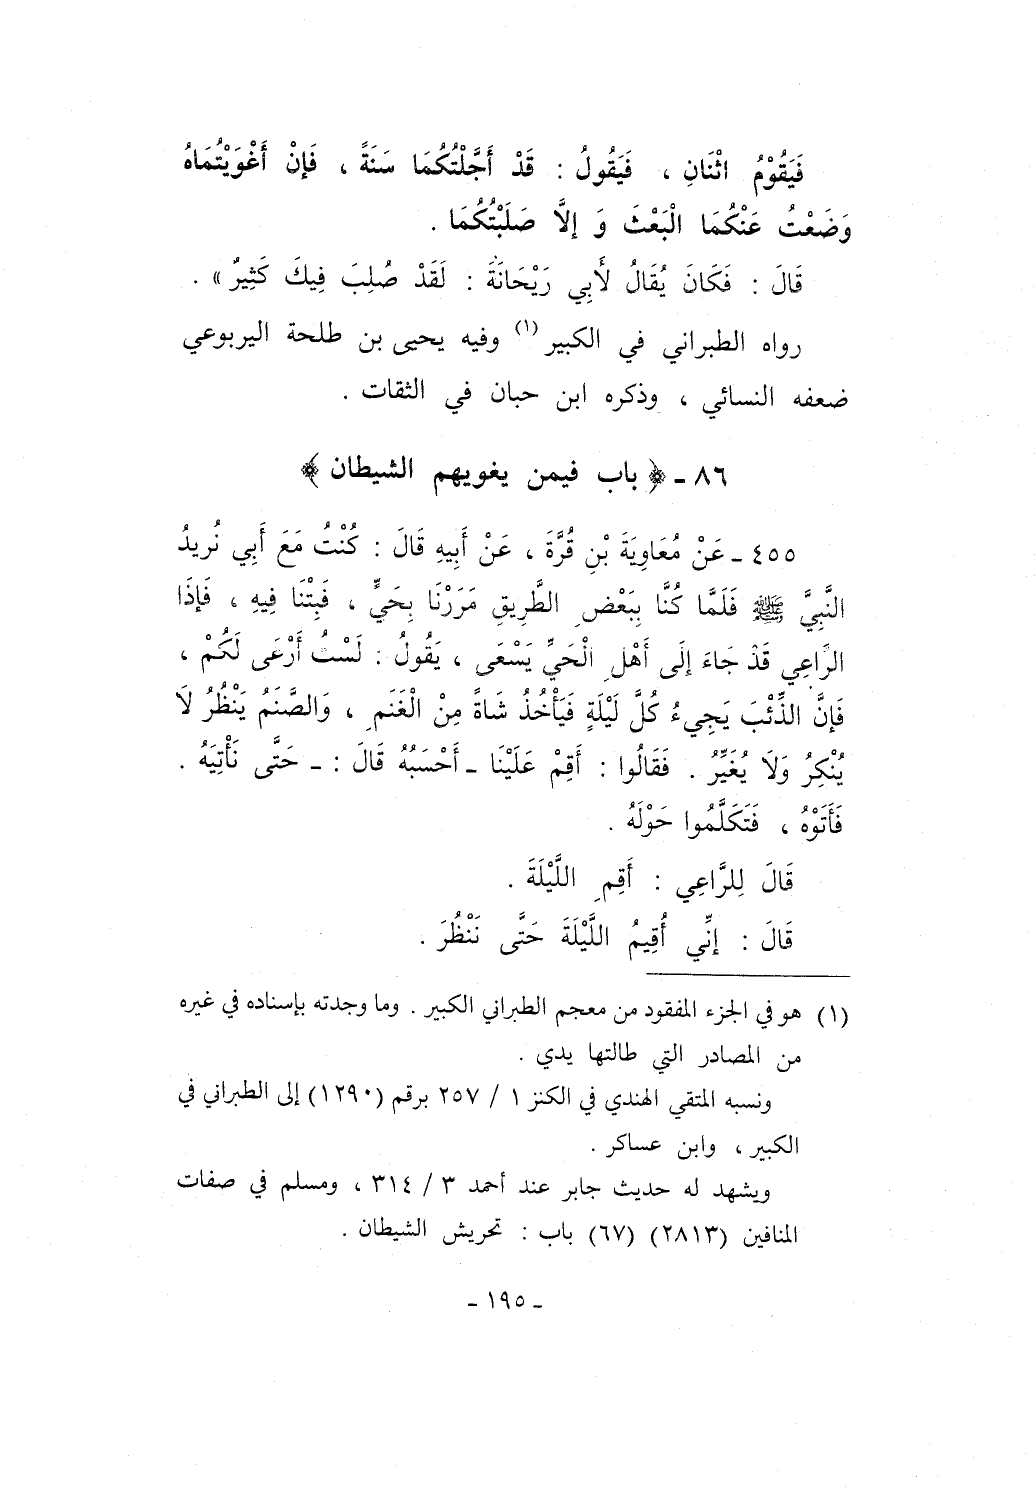 فَيَقُوْمُ اثْنَانِ ، فَيَقُولُ : قَدْ أَجَّلْتُكُمَا سَنَةً ، فَإِنْ أَغْوَيْتُمَاهُ
وَضَعْتُ عَنْكُمَا الْبَعْثَ وَ إلاَّ صَلَبْتُكُمَا .
قَالَ : فَكَانَ يُقَالُ لأَبِي رَيْحَانَةَ : لَقَدْ صُلِبَ فِيكَ كَثِيرٌ » .
رواه الطبراني في الكبير (١) وفيه يحيى بن طلحة اليربوعي
ضعفه النسائي ، وذكره ابن حبان في الثقات .
٨٦ - ﴿ باب فيمن يغويهم الشيطان ﴾
٤٥٥ - عَنْ مُعَاوِيَةَ بْنِ قُرَّةَ ، عَنْ أَبِيهِ قَالَ : كُنْتُ مَعَ أَبِي نُرِيدُ
النَّبِيَّ ﷺ فَلَمَّا كُنَّا بِبَعْضِ الطَّرِيقِ مَرَرْنَا بِحَيٍّ ، فَبِتْنَا فِيهِ ، فَإِذَا
الرَّاعِي قَدْ جَاءَ إِلَى أَهْلِ الْحَيِّ يَسْعَى ، يَقُولُ : لَسْتُ أَرْعَى لَكُمْ ،
فَإِنَّ الذِّئْبَ يَجِيءُ كُلَّ لَيْلَةٍ فَيَأْخُذُ شَاةً مِنَ الْغَنَمِ ، وَالصَّنَمُ يَنْظُرُ لاَ
يُنْكِرُ وَلَا يُغَيِّرُ . فَقَالُوا : أَقِمْ عَلَيْنَا - أَحْسَبُهُ قَالَ : - حَتَّى نَأْتِيَهُ .
فَأَتَوْهُ ، فَتَكَلَّمُوا حَوْلَهُ .
قَالَ لِلرَّاعِي : أَقِمِ اللَّيْلَةَ .
قَالَ : إِنِّي أُقِيمُ اللَّيْلَةَ حَتَّى نَنْظُرَ .
(١) هو في الجزء المفقود من معجم الطبراني الكبير . وما وجدته بإسناده في غيره
من المصادر التي طالتها يدي .
ونسبه المتقي الهندي في الكنز ١ / ٢٥٧ برقم (١٢٩٠) إلى الطبراني في
الكبير ، وابن عساكر .
ويشهد له حديث جابر عند أحمد ٣ / ٣١٤ ، ومسلم في صفات
المنافين (٢٨١٣) (٦٧) باب : تحريش الشيطان .
- ١٩٥ -